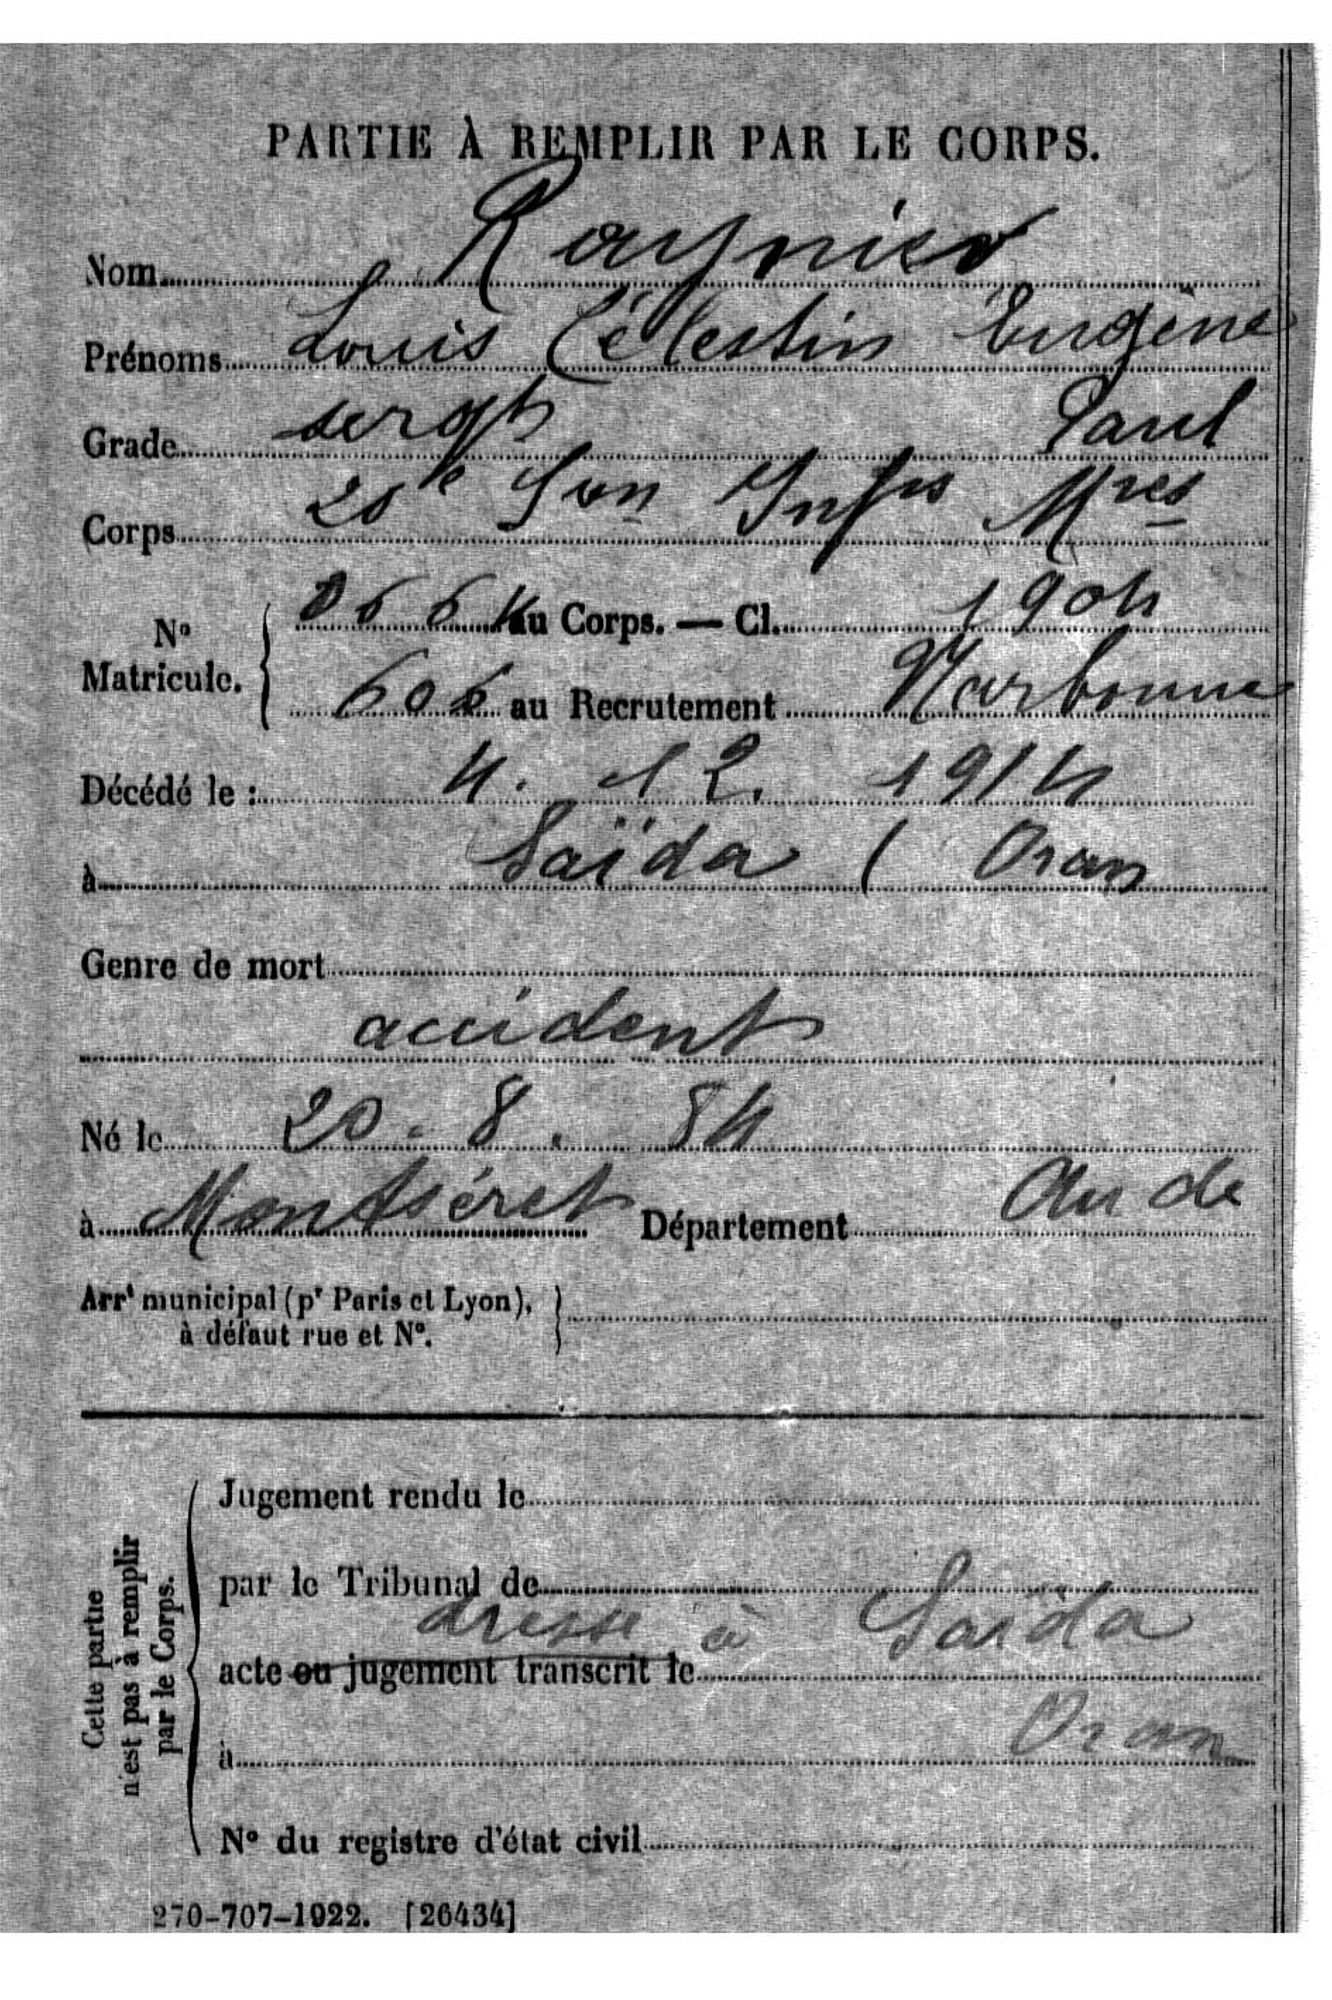 PARTIE À REMPLIR PAR LE CORPS.
Nom Raynier
Prénoms Louis Célestin Eugène
Paul
Grade sergt
Corps 20e Son Infrs Mres
N° Matricule. au Corps. — Cl. 1904
606 au Recrutement Narbonne
Décédé le : 4. 12. 1914
à Saïda ( Oran
Genre de mort
accident
Né le 20. 8. 84
à Montséret Département Aude
Arrt municipal (pr Paris et Lyon),
à défaut rue et N°.
Cette partie
n'est pas à remplir
par le Corps.
Jugement rendu le
par le Tribunal de
dressé à Saïda
acte ou jugement transcrit le
à Oran
N° du registre d'état civil
270-707-1922. [26434]